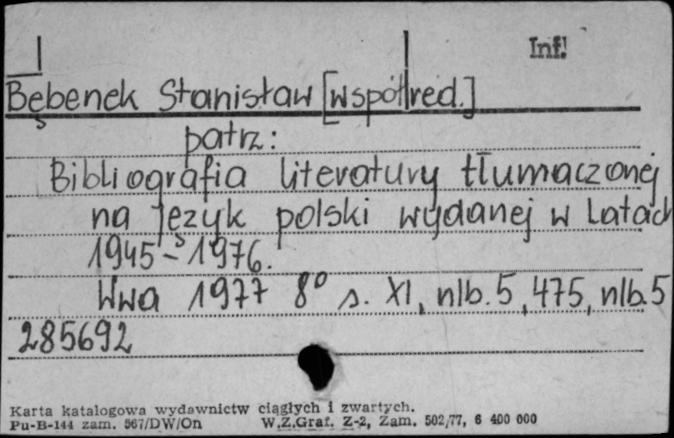 Inf!
Bębenek Stanisław [współred.]
patrz:
Bibliografia literatury tłumaczonej
na język polski wydanej w latach
1945-1976.
Wwa 1977 8° s. XI, nlb. 5, 475, nlb. 5
285692
Karta katalogowa wydawnictw ciągłych i zwartych.
Pu-B-144 zam. 567/DW/On W.Z.Graf. Z-2, Zam. 502/77, 6 400 000